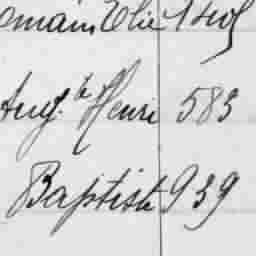 omain Elie
Aug.te Henri 583
Baptiste 939